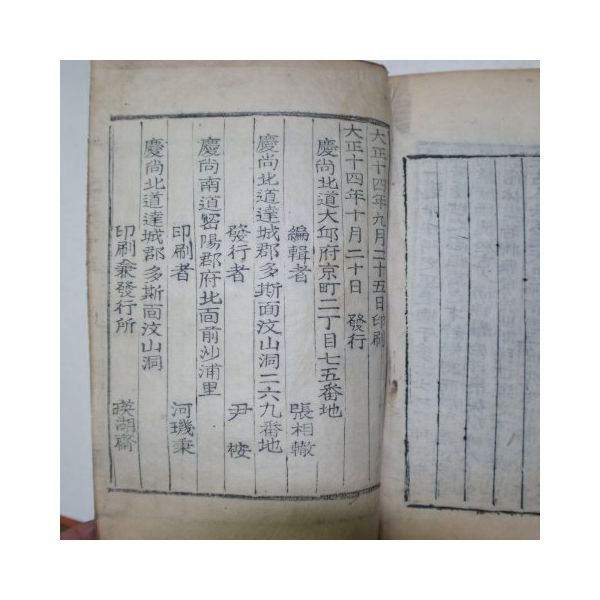 大正十四年九月二十五日印刷
大正十四年十月二十日 發行
慶尚北道大邱府京町二丁目七五番地
編輯者 張相轍
慶尚北道達城郡多斯面汶山洞二六九番地
發行者 尹
慶尚南道密陽郡府北面前沙浦里
印刷者 河璣秉
慶尚北道達城郡多斯面汶山洞
印刷兼發行所 瑛湖齋